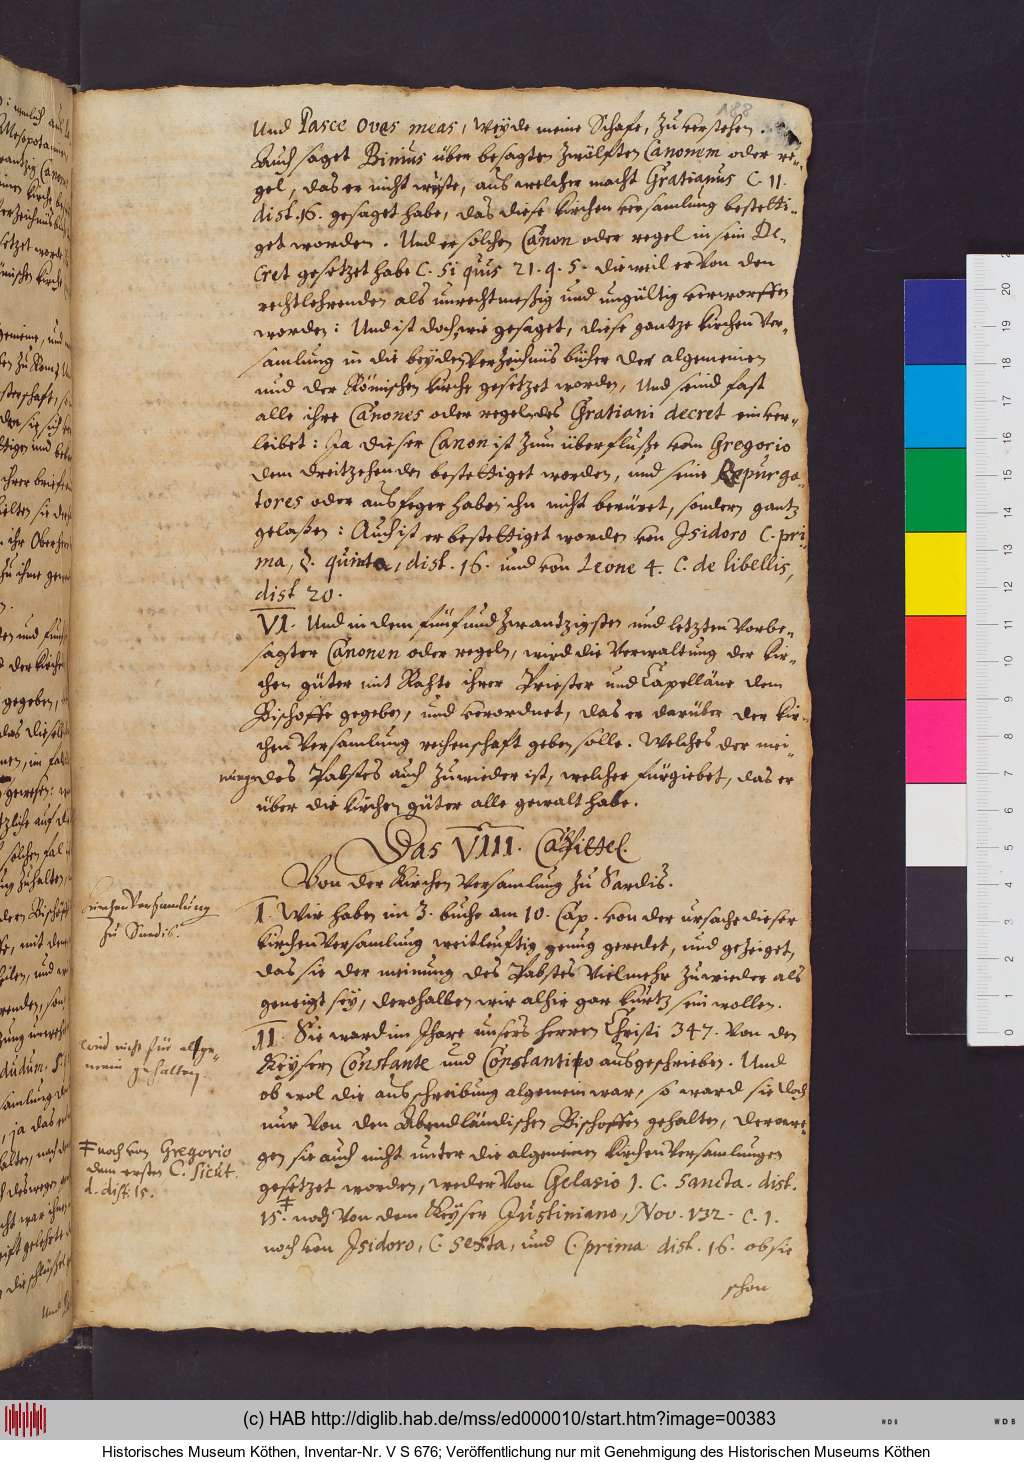 188
Und Pasce oves meas, Weyde meine Schafe, zu verstehen.
Auch saget Binius über besagten zwölften Canonem oder re-
gel, das er nicht wüste, aus welcher macht Gratianus C. 11.
dist. 16. gesaget habe, das diese Kirchen versamlung bestetti-
get worden. Und er solchen Canon oder regel in sein De-
cret gesetzet habe C. Si quis 21. q. 5. dieweil er von den
rechtlehrenden als unrechtmeßig und ungültig verworffen
worden: Und ist doch, wie gesaget, diese gantze Kirchen Ver-
samlung in die beyden Verzeichnüs bücher der algemeinen
und der Römischen Kirche gesetzet worden, Und seind fast
alle ihre Canones oder regeln des Gratiani decret einver-
leibet: Ja dieser Canon ist zum überfluße vom Gregorio
dem dreitzehenden bestettiget worden, und seine Repurga-
tores oder ausfeger haben ihn nicht berüret, sondern gantz
gelaßen: Auch ist er bestettiget worden von Isidoro C. pri-
ma, §. quinta, dist. 16. und von Leone 4. C. de libellis,
dist 20.
VI. Und in dem fünf und zwantzigsten und letzten Vorbe-
sagter Canonen oder regeln, wird die Verwaltung der Kir-
chen güter mit Rahte ihrer Priester und Capelläne dem
Bischoffe gegeben, und verordnet, das er darüber der Kir-
chen Versamlung rechenschaft geben solle. Welches der mei-
nunge des Pabstes auch zuwieder ist, welcher fürgiebet, das er
über die Kirchen güter alle gewalt habe.
Das VIII. Capittel.
Von der Kirchen Versamlung zu Sardis.
Kirchen Versamlung
zu Sardis.
I. Wir haben im 3. buche am 10. Cap. von der ursache dieser
Kirchen Versamlung weitleuftig genug geredet, und gezeiget,
das sie der meinung des Pabstes Vielmehr zuwieder als
geneigt sey, derohalben wir alhie gar kurtz sein wollen.
wird nicht für allge-
mein gehalten.
II. Sie ward im Jhare unsers Herren Christi 347. Von den
Keysern Constante und Constantino ausgeschrieben. Und
ob wol die ausschreibung algemein war, so ward sie doch
nur Von den Abendländischen Bischoffen gehalten, derwe-
gen sie auch nicht unter die algemeinen Kirchen Versamlungen
gesetzet worden, weder Von Gelasio 1. C. Sancta. dist.
15. ‡ noch Von dem Keyser Justiniano, Nov. 132. C. 1.
noch von Isidoro, C. Sexta, und C. prima dist. 16. ob sie
‡ noch von Gregorio
dem ersten C. Sicut.
d. dist. 15.
schon
(c) HAB http://diglib.hab.de/mss/ed000010/start.htm?image=00383
Historisches Museum Köthen, Inventar-Nr. V S 676; Veröffentlichung nur mit Genehmigung des Historischen Museums Köthen